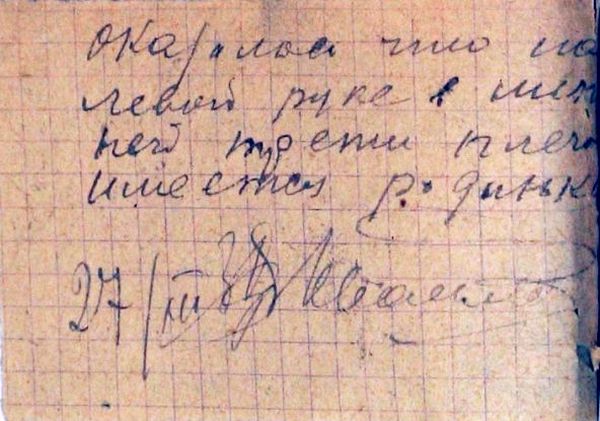 оказалось что на
левой руке в
ней трети плеча
имеется родинка
27/